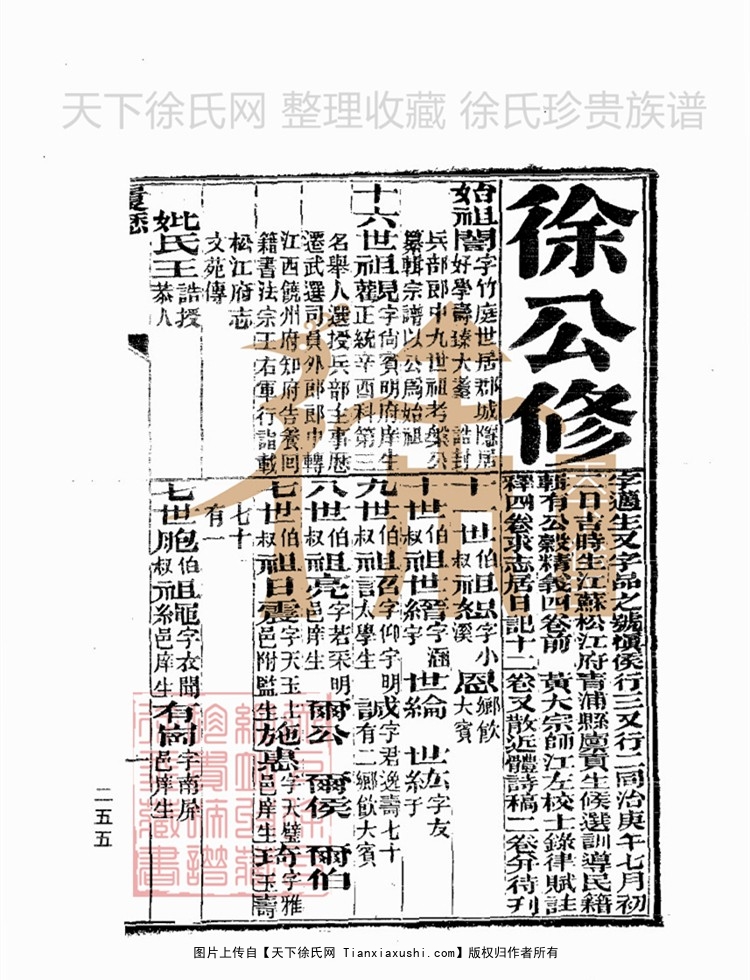 天下徐氏网 整理收藏 徐氏珍贵族谱
徐公修
字適生又字品之號槙侯行三又行二同治庚午七月初
六日吉時生江蘇松江府青浦縣廩貢生候選訓導民籍
輯有公穀精義四卷前 黃大宗師江左校士錄律賦註
釋四卷求志居日記十二卷又散近體詩稿二卷弁待刋
始祖闇字竹庭世居郡城隱居
好學壽臻大耋 誥封
兵部郎中九世祖考槃公
纂輯宗譜以公爲始祖
十六世祖觀字尚賓明府庠生
正統辛酉科第三
名舉人選授兵部主事歷
遷武選司員外郎郎中轉
江西饒州府知府告養回
籍書法宗王右軍行誼載
松江府志
文苑傳
妣氏王誥授
恭人
履歷
十一世伯叔祖恕字小溪 恩鄉飲大賓
十世伯叔祖世縉字涵宇 世綸 世紘字友
九世伯叔祖召字仰宇明太學生 誠字君逸壽七十有二鄉飲大賓
八世伯叔祖亮字若采明邑庠生 爾公 爾侯 爾伯
七世伯叔祖日震字天玉邑附監生 施惠字天璧邑庠生 琦字雅玉壽
七十
有一
七世胞伯叔祖黿字衣聞邑庠生 有崗字南屏邑庠生
一
二五五
图片上传自【天下徐氏网 Tianxiaxushi.com】版权归作者所有